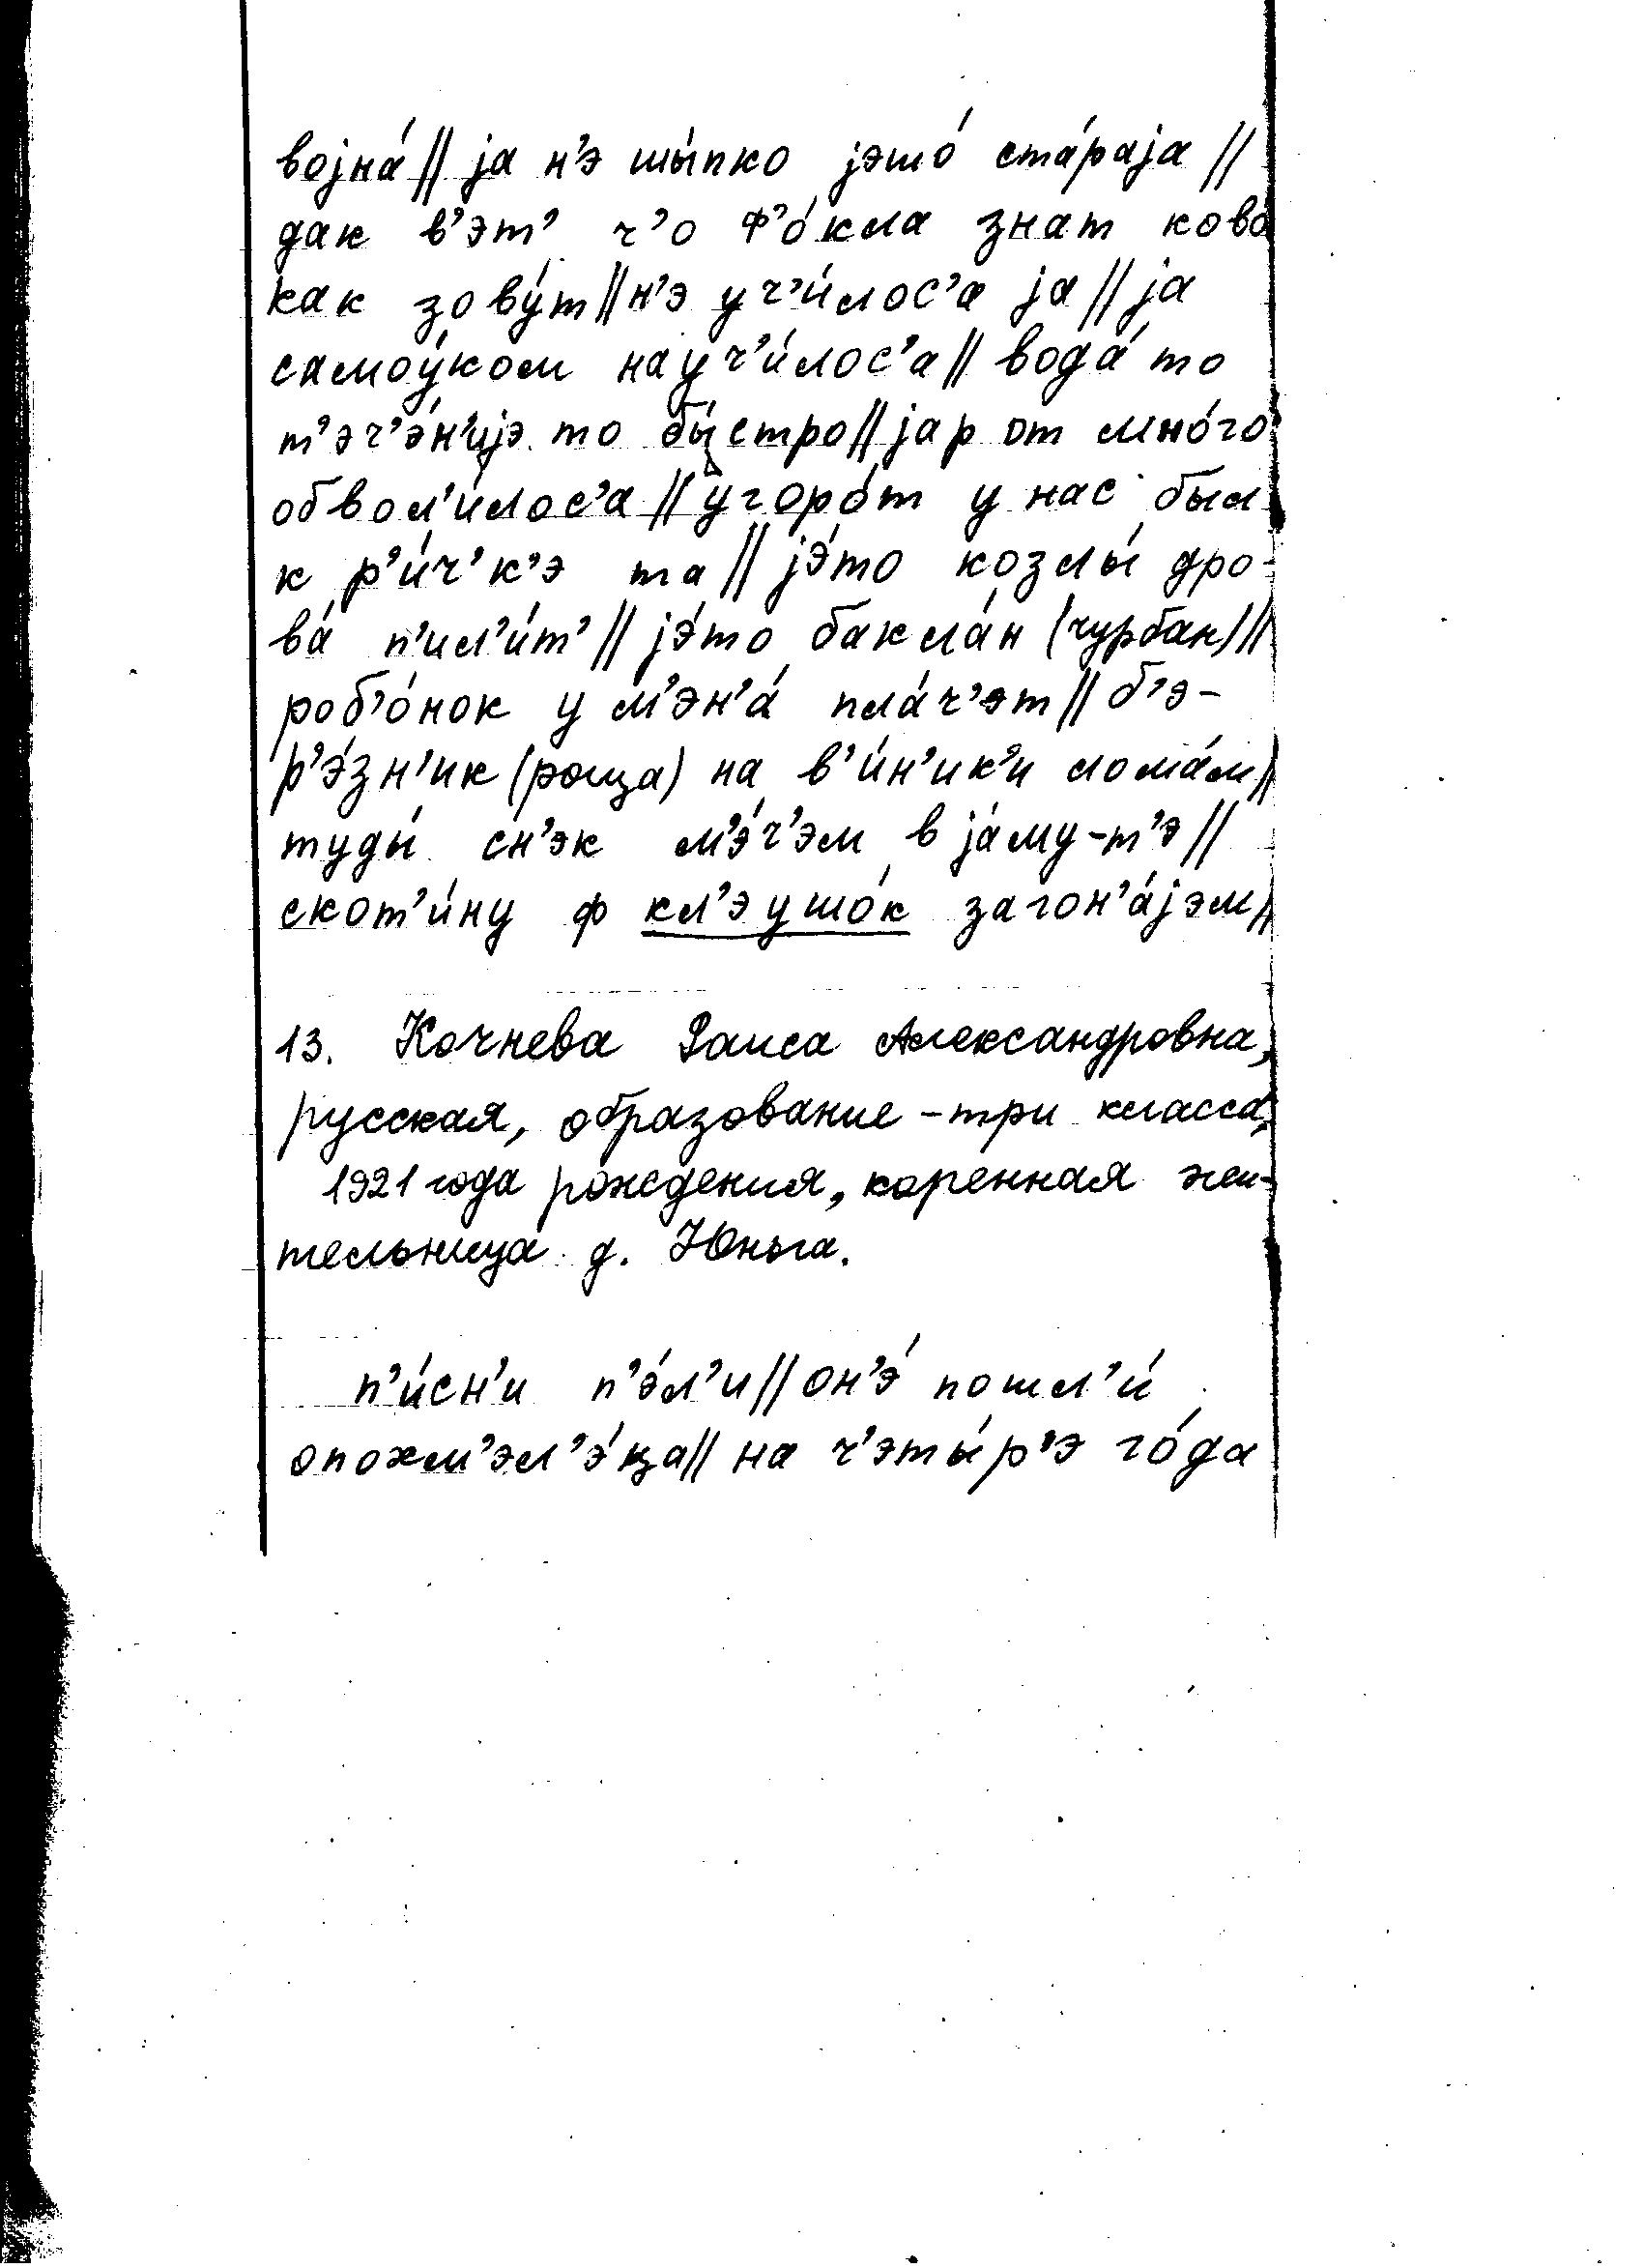 војна́ // ја н’э шы́пко јэшо́ ста́раја //
дак в’эт’ ч’о Ф’о́кла знат ково́
как зову́т // н’э уч’и́лос’а ја // ја
самоу́ком науч’и́лос’а // вода́ то
т’эч’э́н’ијэ то бы́стро // јар от мно́го
обвол’и́лос’а // угоро́т у нас был
к р’и́ч’к’э та // јэ́то козлы́ дро-
ва́ п’ил’и́т’ // јэ́то бакла́н (чурбан) //
роб’о́нок у м’эн’а́ пла́ч’эт // б’э-
р’э́зн’ик (роща) на в’и́н’ик’и лома́м //
туды́ сн’эк м’э́ч’эм в ја́му-т’э //
скот’и́ну ф кл’эушо́к загон’а́јэм //
13. Кочнева Раиса Александровна,
русская, образование - три класса,
1921 года рождения, коренная жи-
тельница д. Юньга.
п’и́сн’и п’э́л’и // он’э́ пошл’и́
опохм’эл’э́ца // на ч’эты́р’э го́да